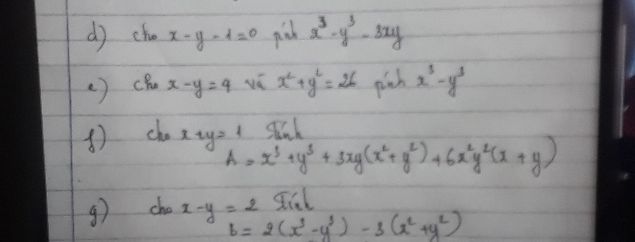 d) cho x - y - 1 = 0 tính x³ - y³ - 3xy
e) cho x - y = 4 và x² + y² = 26 tính x³ - y³
f) cho x + y = 1 Tính
A = x³ + y³ + 3xy(x² + y²) + 6x²y²(x + y)
g) cho x - y = 2 Tính
b = 2(x³ - y³) - 3(x² + y²)